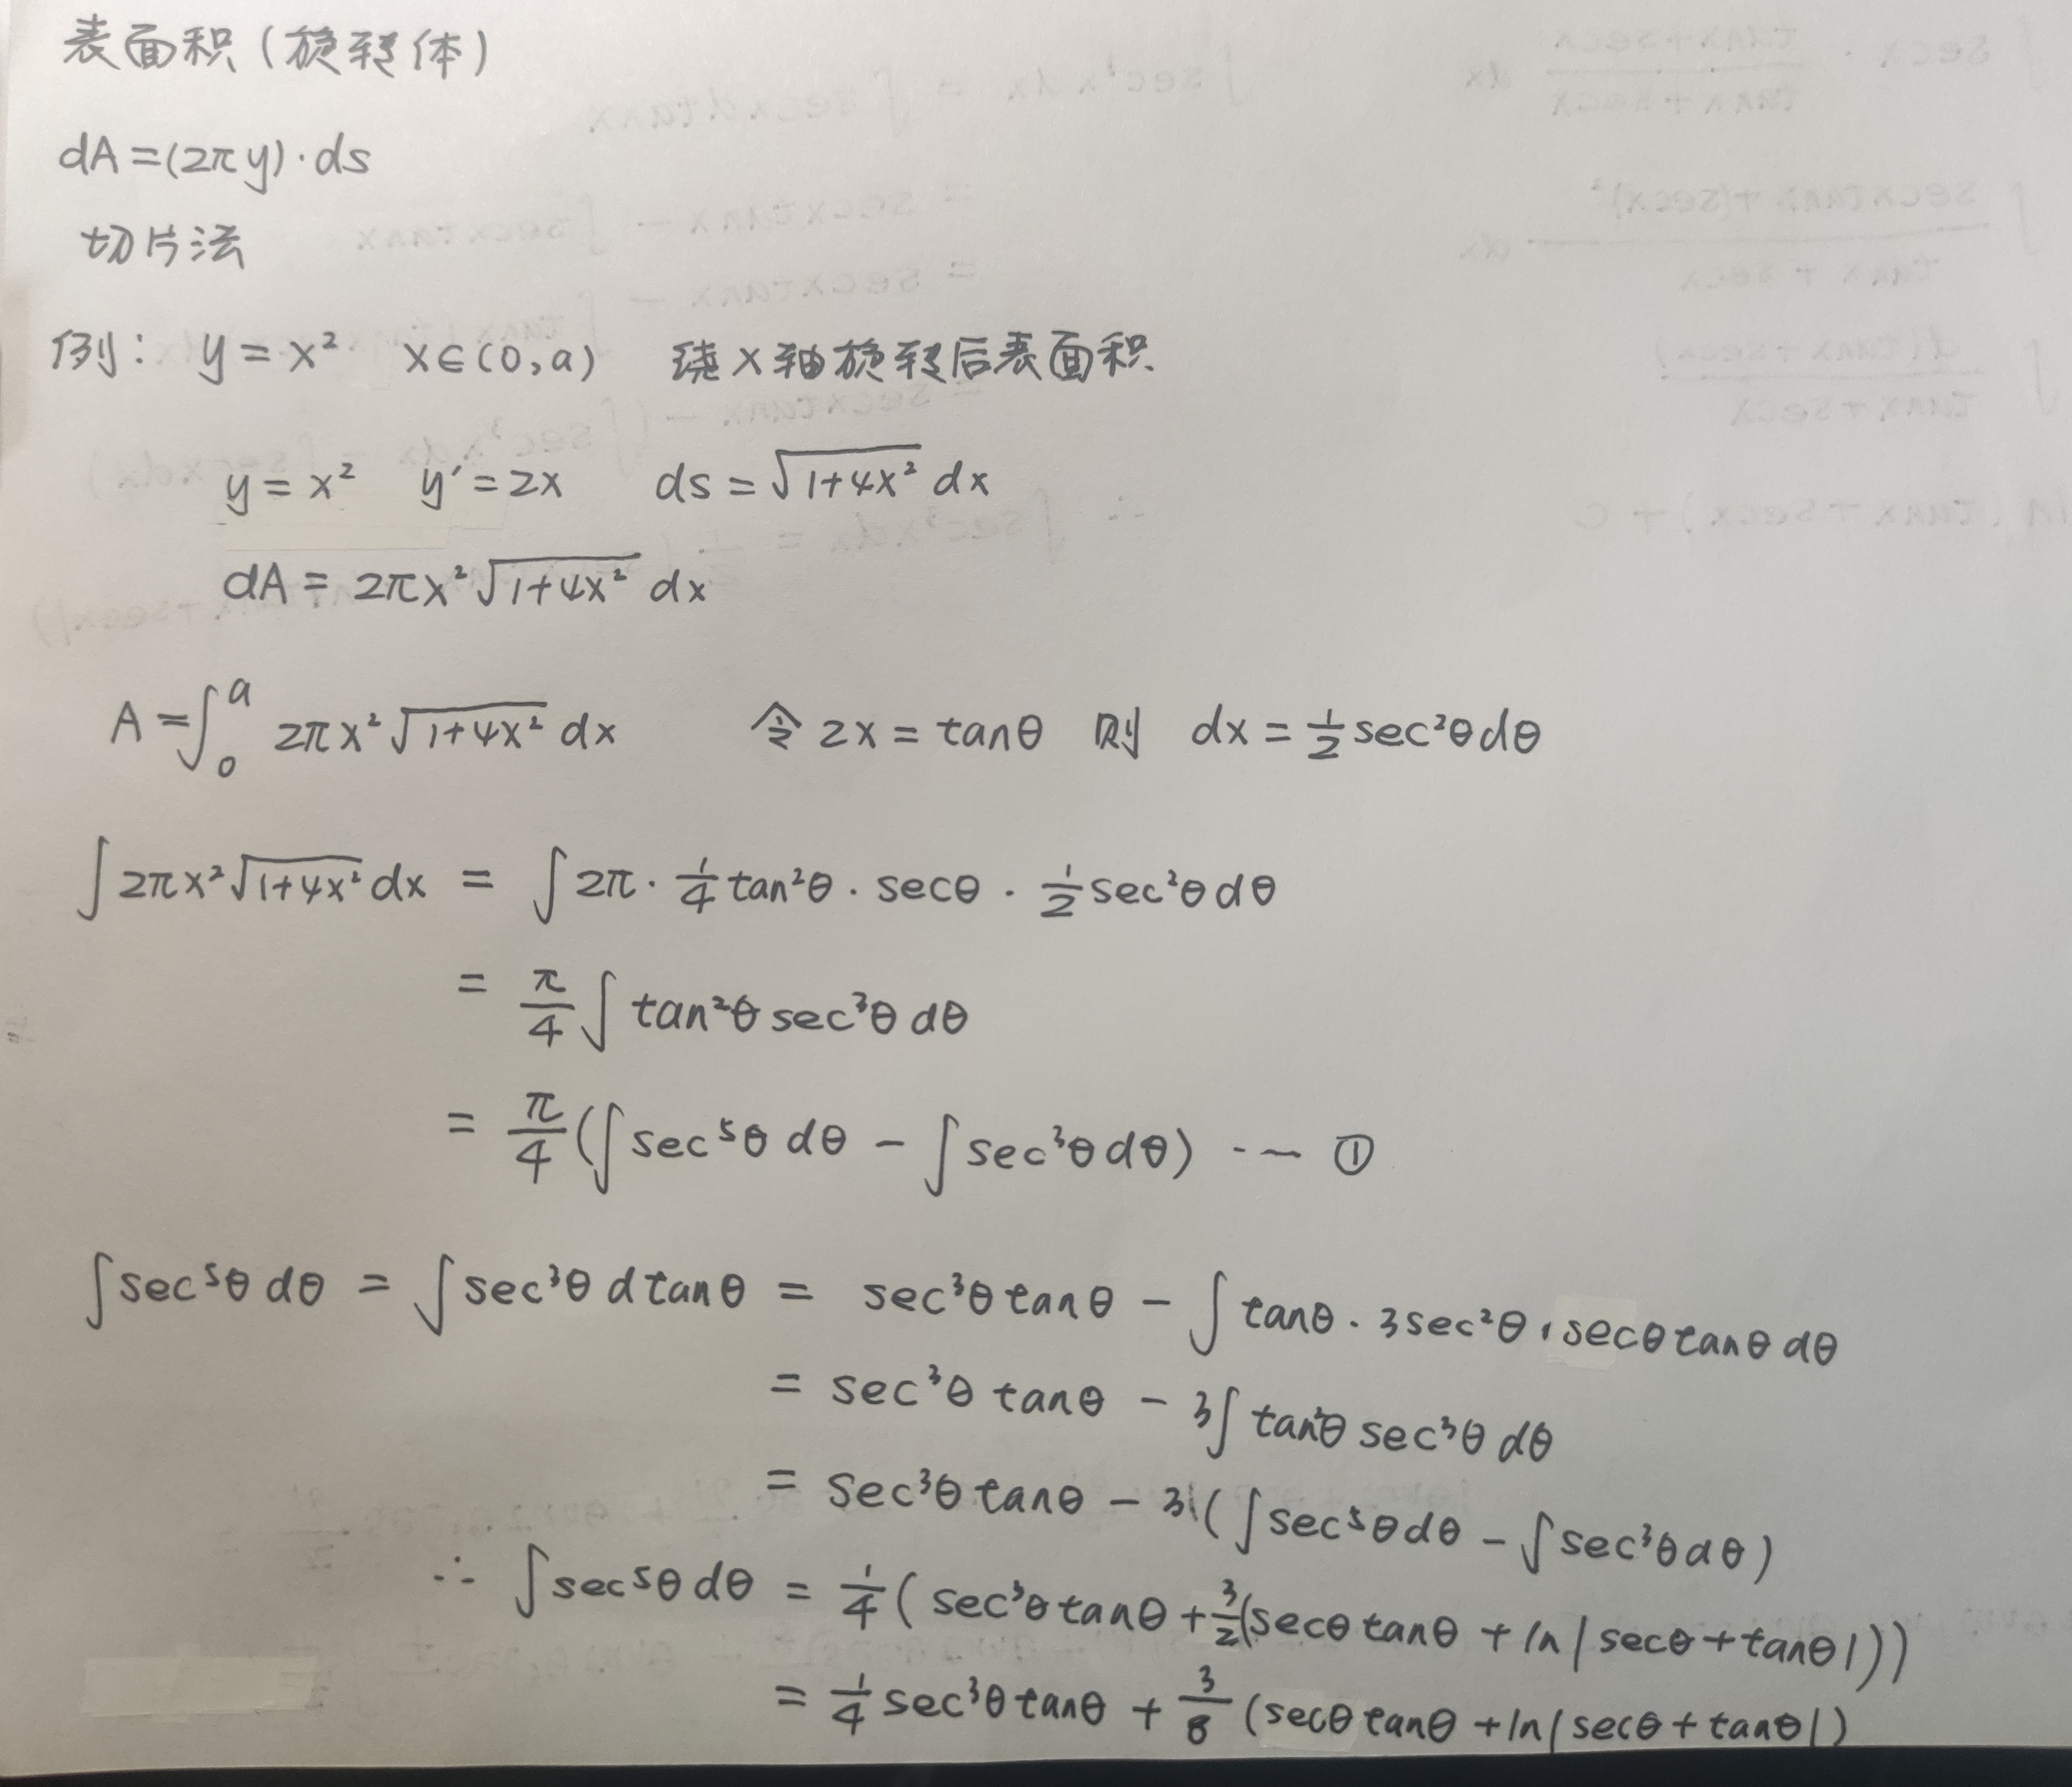 表面积(旋转体)
dA=(2πy)·ds
切片法
例: y=x² x∈(0,a) 绕x轴旋转后表面积
y=x² y′=2x ds=√(1+4x²) dx
dA=2πx²√(1+4x²) dx
A=∫₀ᵃ 2πx²√(1+4x²) dx 令2x=tanθ 则 dx=½sec²θdθ
∫2πx²√(1+4x²)dx = ∫2π·¼tan²θ·secθ·½sec²θdθ
= π/4∫tan²θsec³θdθ
= π/4(∫sec⁵θdθ-∫sec³θdθ) ··· ①
∫sec⁵θdθ = ∫sec³θdtanθ = sec³θtanθ-∫tanθ·3sec²θ·secθtanθdθ
= sec³θtanθ-3∫tan²θsec³θdθ
= sec³θtanθ-3(∫sec⁵θdθ-∫sec³θdθ)
∴ ∫sec⁵θdθ = ¼(sec³θtanθ+3/2(secθtanθ+ln|secθ+tanθ|))
= ¼sec³θtanθ+3/8(secθtanθ+ln|secθ+tanθ|)